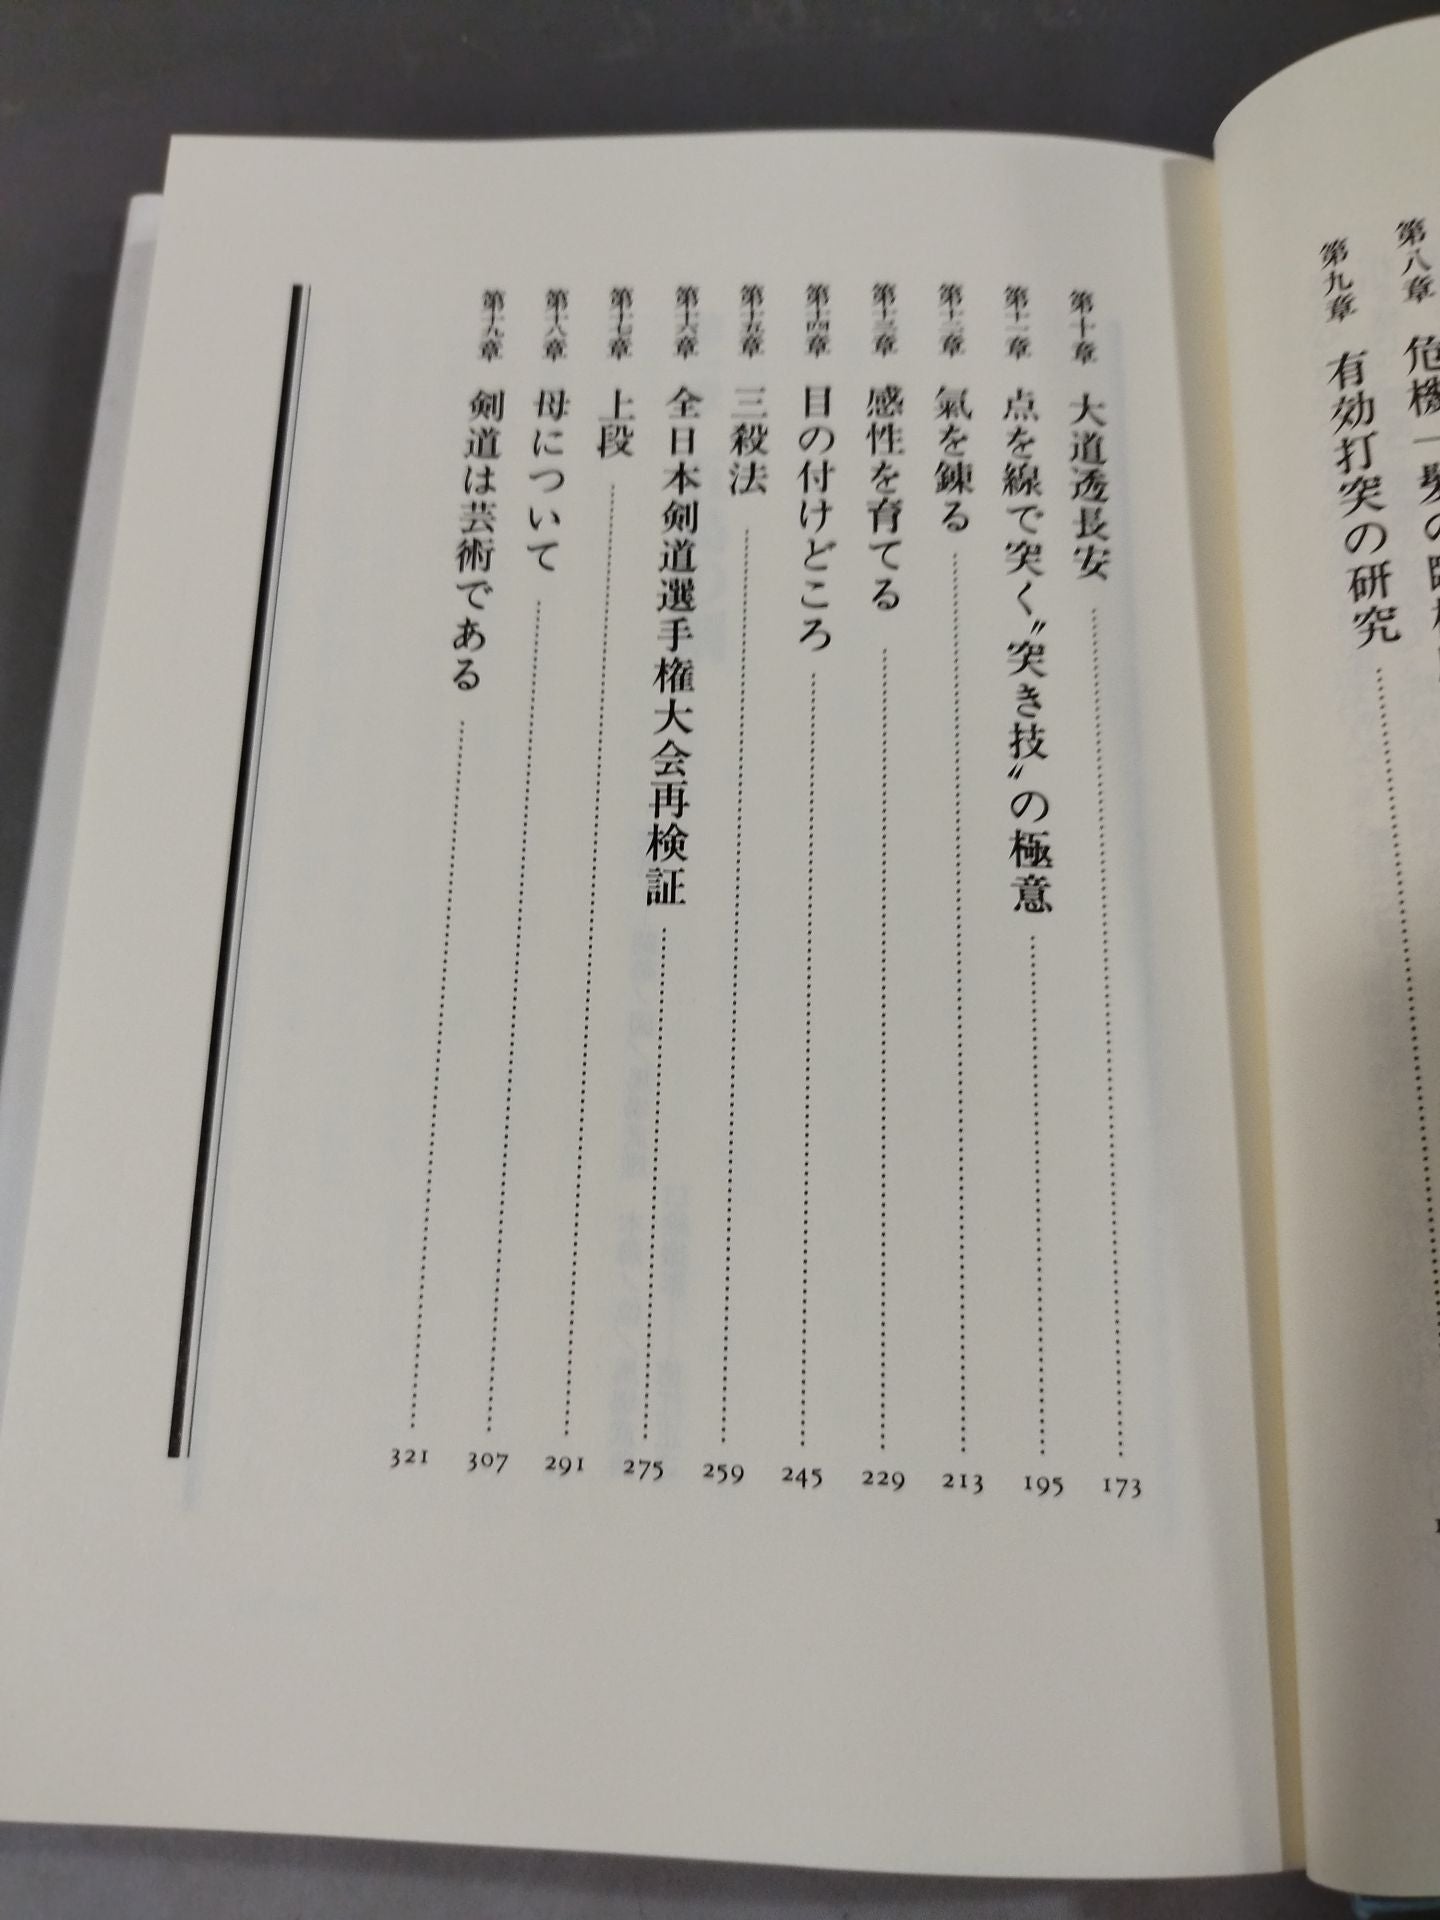 第八章 危機一髪の
第九章 有効打突の研究
第十章 大道透長安 173
第十一章 点を線で突く〝突き技〟の極意 195
第十二章 氣を錬る 213
第十三章 感性を育てる 229
第十四章 目の付けどころ 245
第十五章 三殺法 259
第十六章 全日本剣道選手権大会再検証 275
第十七章 上段 291
第十八章 母について 307
第十九章 剣道は芸術である 321